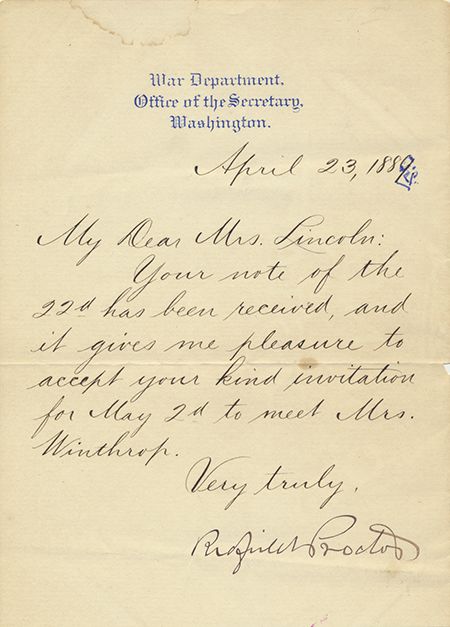 War Department,
Office of the Secretary,
Washington.
April 23, 1889.
My Dear Mrs. Lincoln:
Your note of the
22d has been received, and
it gives me pleasure to
accept your kind invitation
for May 2d to meet Mrs.
Winthrop.
Very truly,
Redfield Proctor